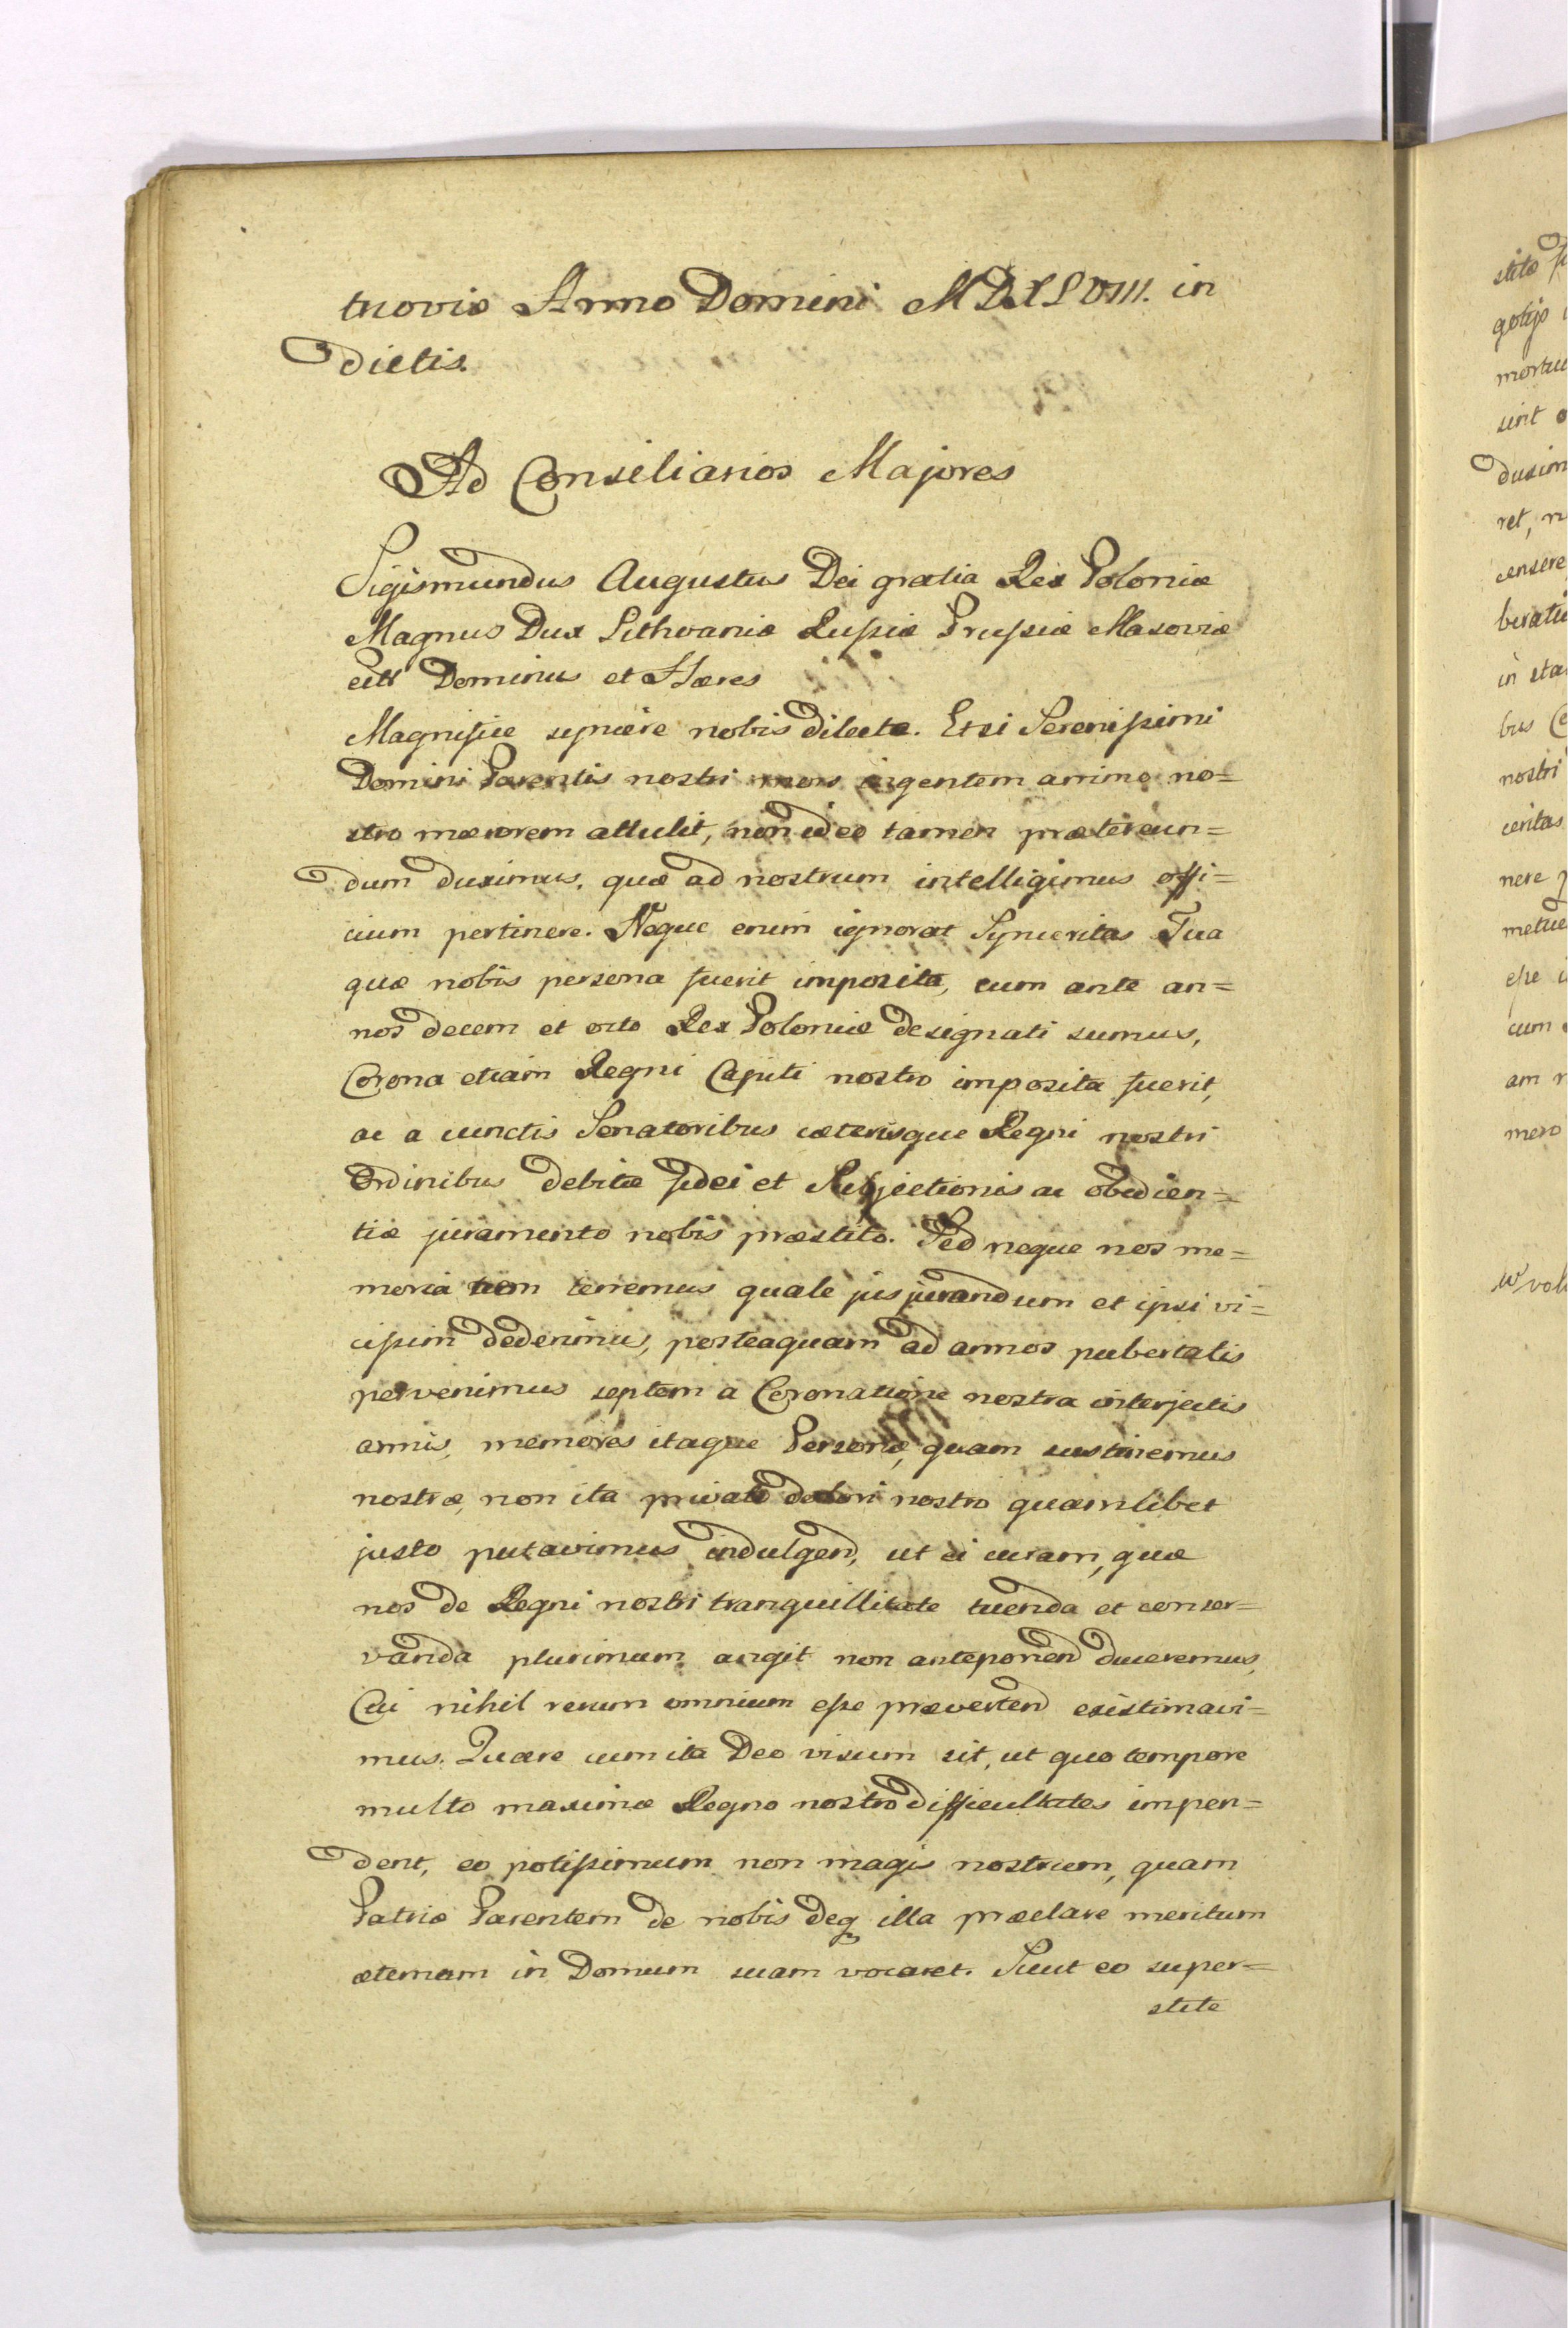 tnoviæ Anno Domini MDXLVIII. in
dictis.
Ad Consiliarios Majores
Sigismundus Augustus Dei gratia Rex Poloniæ
Magnus Dux Lithvaniæ Russiæ Prussiæ Masoviæ
etc Dominus et Hæres
Magnifice syncere nobis dilecte. Etsi Serenissimi
Domini Parentis nostri mors ingentem animo no=
stro mærorem attulit, non ideo tamen prætereun=
dum duximus, quæ ad nostrum intelligimus offi=
cium pertinere. Neque enim ignorat Synceritas Tua
quæ nobis persona fuerit imposita, cum ante an=
nos decem et octo Rex Poloniæ designati sumus,
Corona etiam Regni Capiti nostro imposita fuerit,
ac a cunctis Senatoribus cæterisque Regni nostri
Ordinibus debitæ fidei et Subjectionis ac obedien=
tiæ juramento nobis præstito. Sed neque nos me=
moria non tenemus quale jusjurandum et ipsi vi=
cissim dederimus, posteaquam ad annos pubertatis
pervenimus septem a Coronatione nostra interjectis
annis, memores itaque Personæ, quam sustinemus
nostræ, non ita privato dolori nostro quamlibet
justo putavimus indulgend, ut ei curam, quæ
nos de Regni nostri tranquillitate tuenda et conser=
vanda plurimum angit non anteponend duceremus,
Cui nihil rerum omnium esse prævertend existimavi=
mus. Quare cum ita Deo visum sit, ut quo tempore
multo maximæ Regno nostro difficultates impen=
dent, eo potissimum non magis nostrum, quam
Patriæ Parentem de nobis deq illa præclare meritum
æternam in Domum suam vocaret. Sicut eo super=
stite
stite
gotijs
mortu
sint
duxim
ret, n
censere
berati
in sta
bus
nostri
ceritas
nere
metue
esse
cum
am
mero